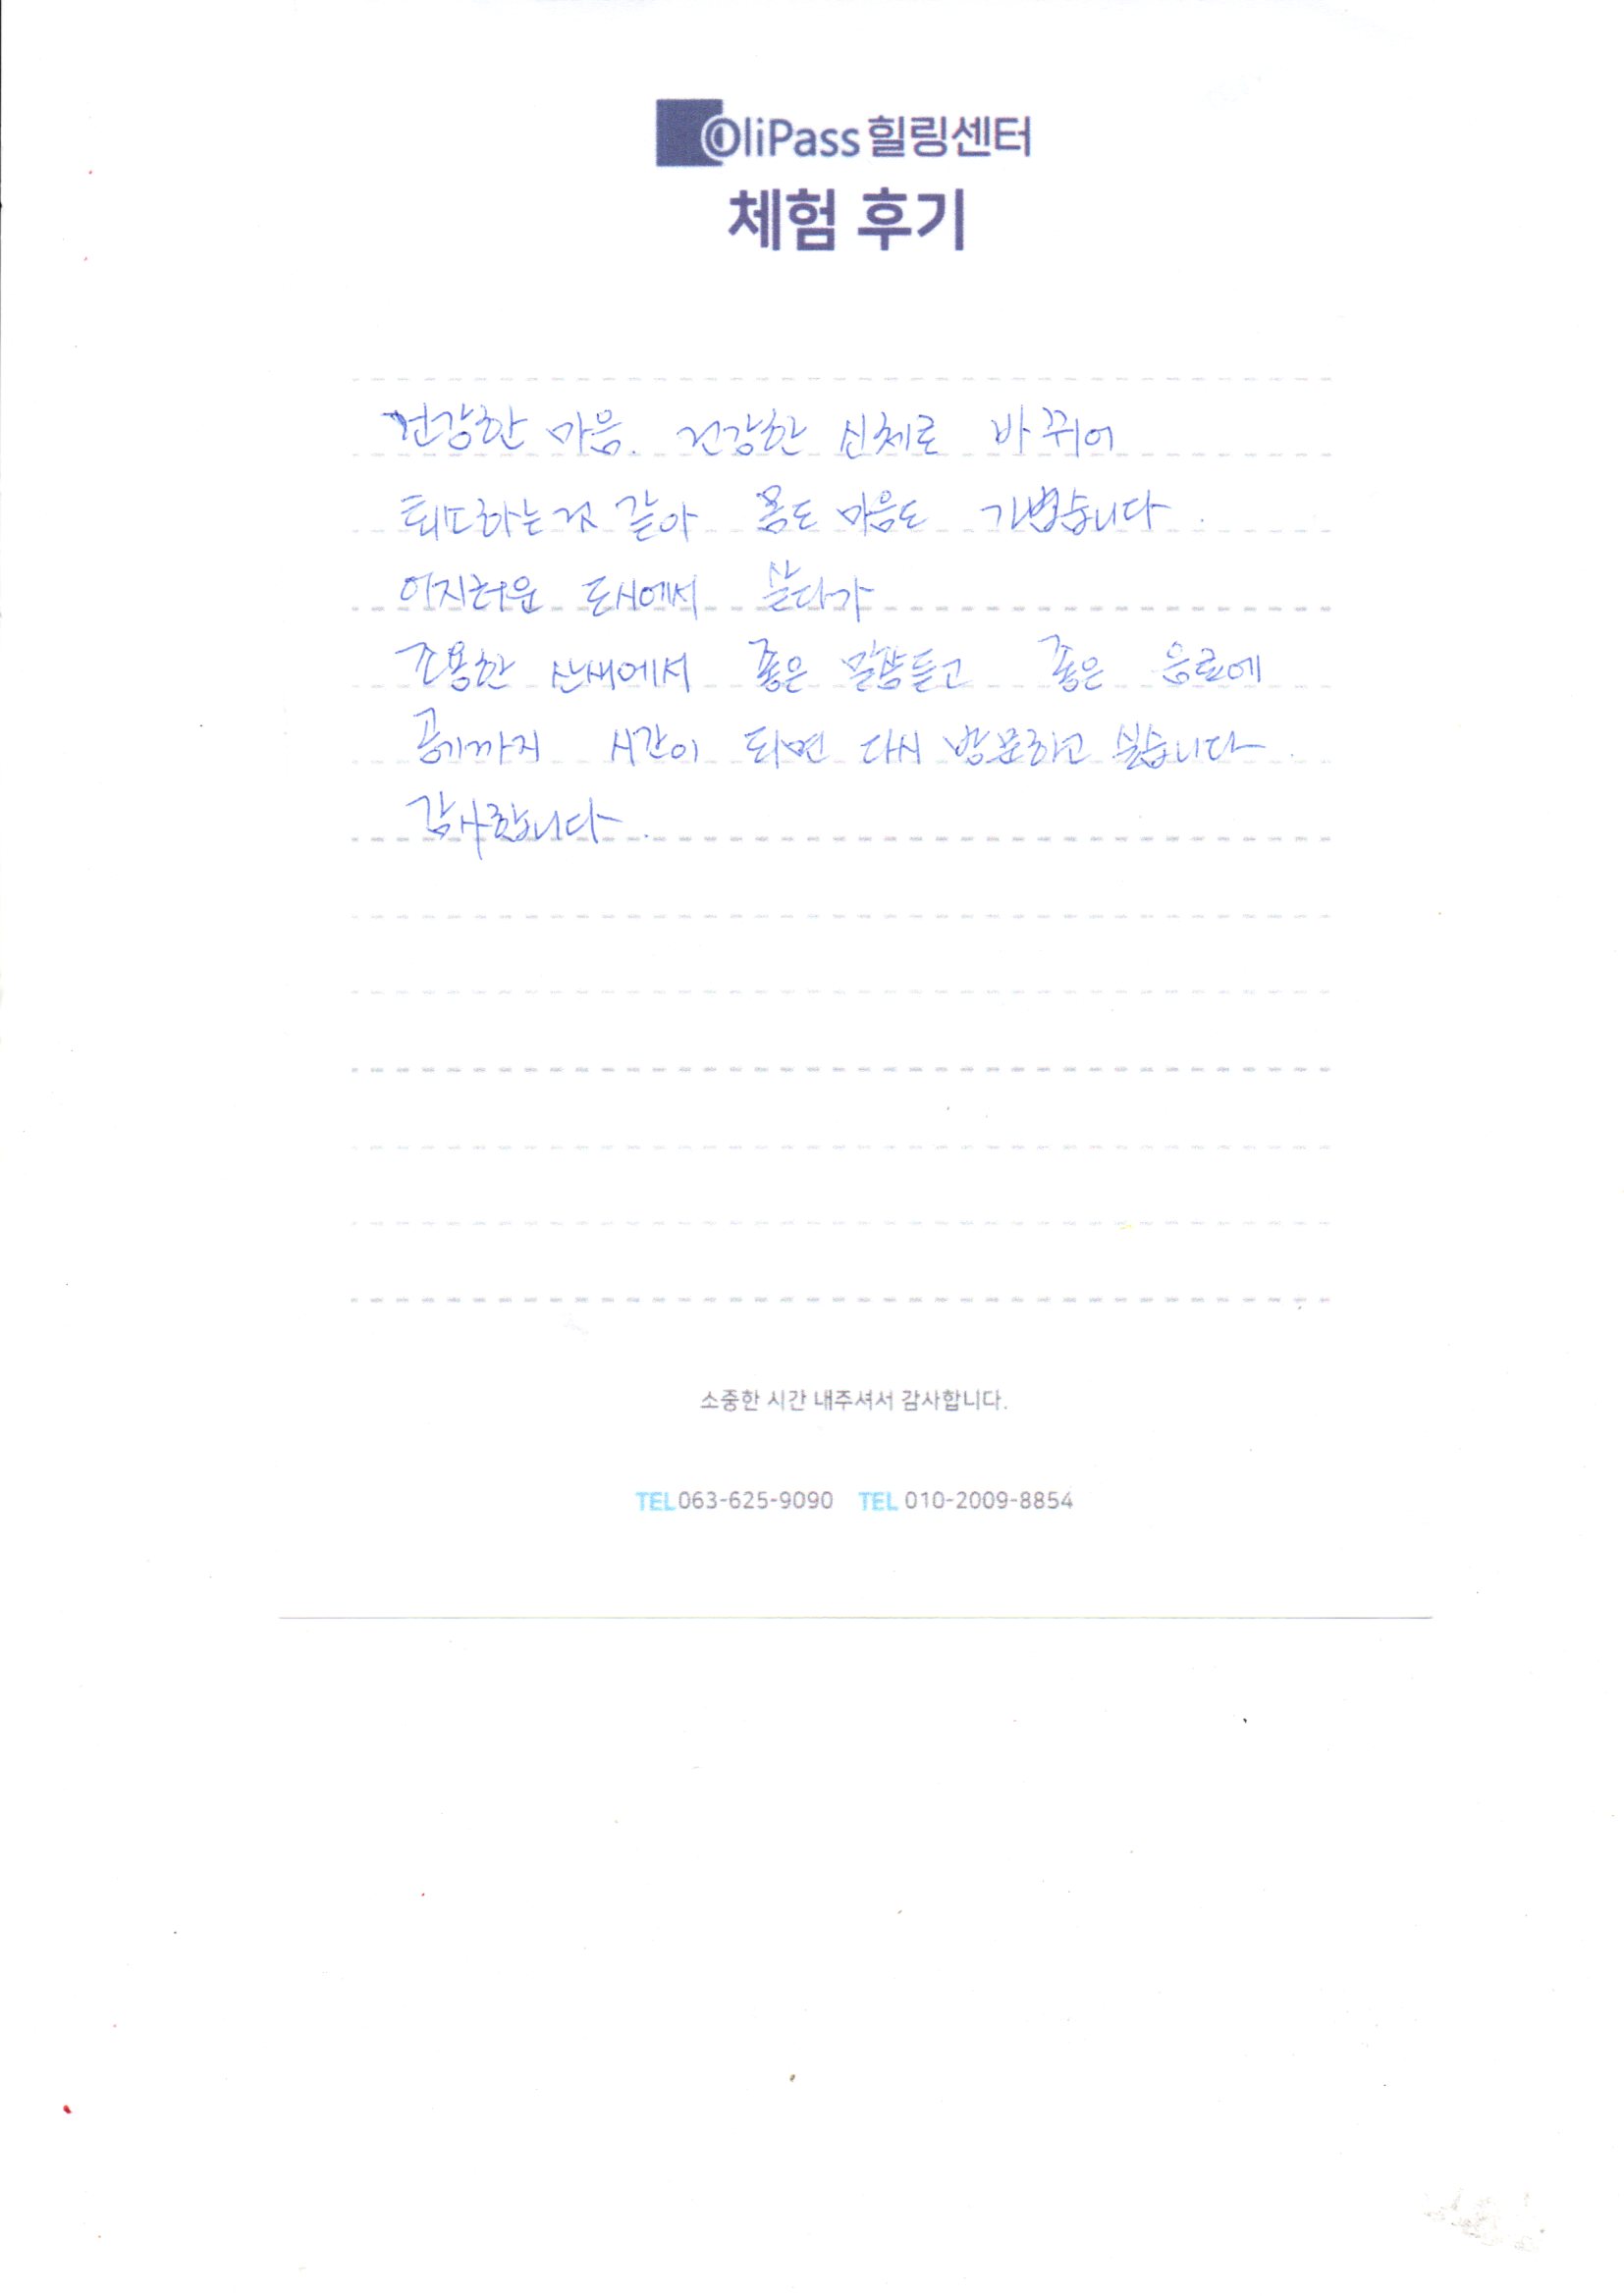 OliPass 힐링센터
체험 후기
건강한 마음. 건강한 신체로 바뀌어
퇴도하는것 같아 몸도 마음도 가볍습니다.
어지러운 도시에서 살다가
조용한 산새에서 좋은 말씀듣고 좋은 음료에
공기까지 시간이 되면 다시 방문하고 싶습니다.
감사합니다.
소중한 시간 내주셔서 감사합니다.
TEL 063-625-9090 TEL 010-2009-8854